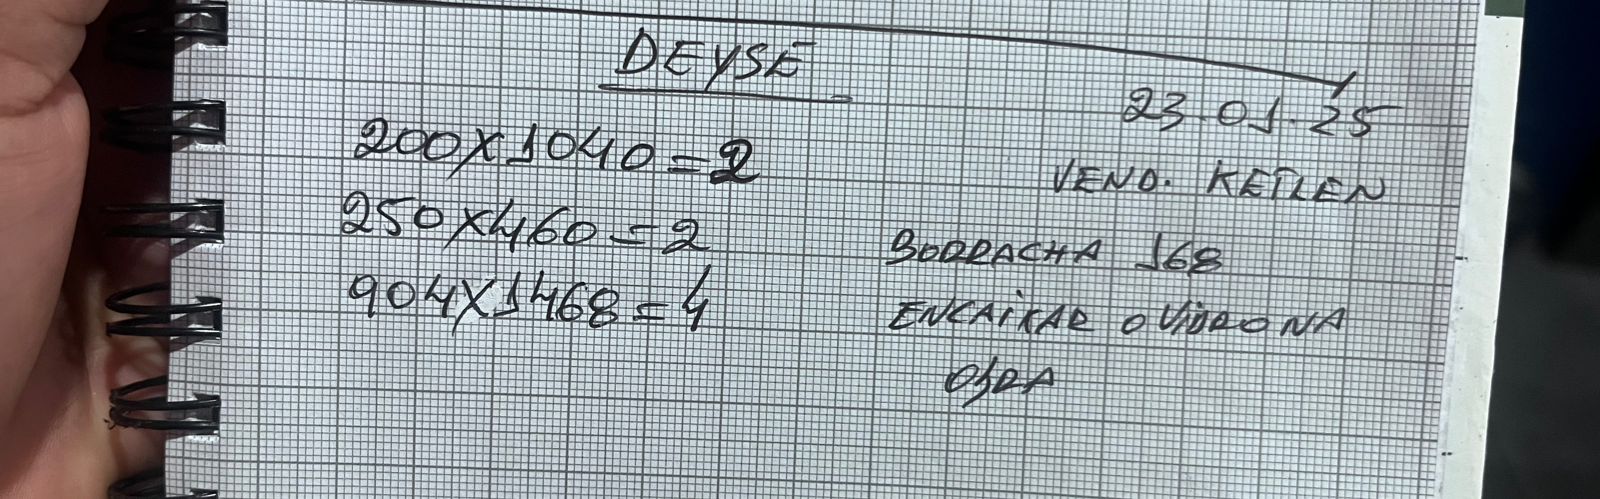 DEYSE
23.01.25
200X1040=2
VEND. KETLEN
250X460=2
BORRACHA 168
904X1468=4
ENCAIXAR O VIDRO NA
OBRA